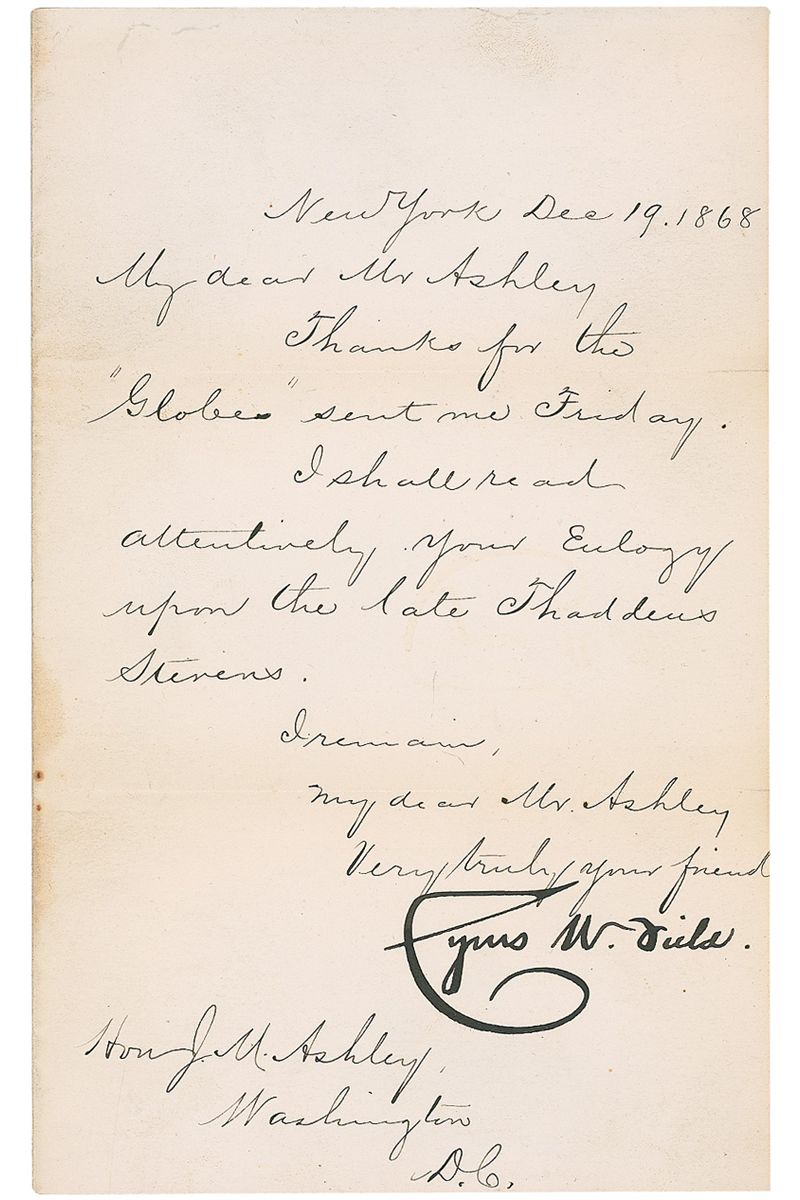 New York Dec 19. 1868
My dear Mr Ashley
Thanks for the
"Globes" sent me Friday.
I shall read
attentively your Eulogy
upon the late Thaddeus
Stevens.
I remain,
My dear Mr. Ashley
Very truly your friend
Cyrus W. Field.
Hon J. M. Ashley,
Washington
D.C.